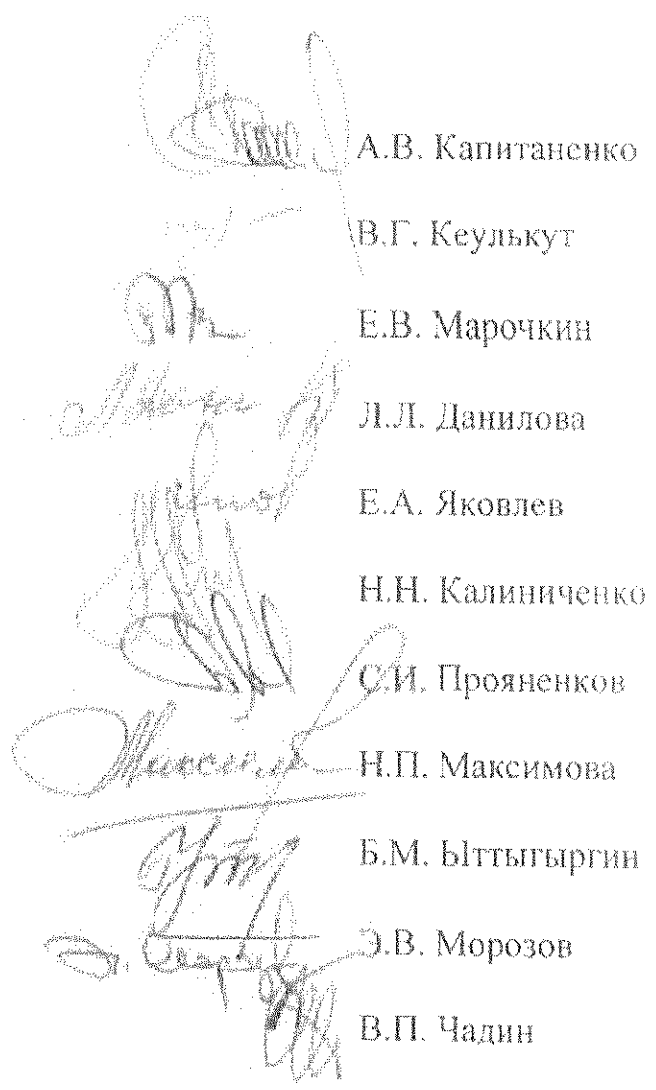 А.В. Капитаненко
В.Г. Кеулькут
Е.В. Марочкин
Л.Л. Данилова
Е.А. Яковлев
Н.Н. Калиниченко
С.И. Прояненков
Н.П. Максимова
Б.М. Ыттыгыргин
Э.В. Морозов
В.П. Чадин